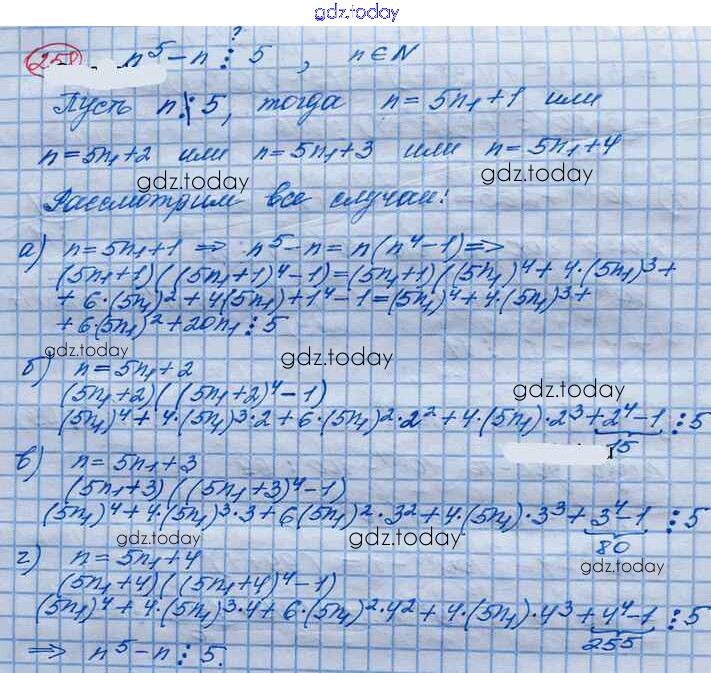 gdz.today
258 n⁵ − n ⋮ 5 , n ∈ N
?
Пусть n ⋮̸ 5, тогда n = 5n₁ + 1 или
n = 5n₁ + 2 или n = 5n₁ + 3 или n = 5n₁ + 4
gdz.today gdz.today
Рассмотрим все случаи:
а) n = 5n₁ + 1 ⇒ n⁵ − n = n(n⁴ − 1) ⇒
(5n₁+1)((5n₁+1)⁴−1) = (5n₁+1)((5n₁)⁴ + 4·(5n₁)³ +
+ 6·(5n₁)² + 4(5n₁) + 1⁴ − 1 = (5n₁)⁴ + 4·(5n₁)³ +
+ 6·(5n₁)² + 20n₁ ⋮ 5
gdz.today gdz.today
б) n = 5n₁ + 2
(5n₁+2)((5n₁+2)⁴−1) gdz.today
(5n₁)⁴ + 4·(5n₁)³·2 + 6·(5n₁)²·2² + 4·(5n₁)·2³ + 2⁴−1 ⋮ 5
15
в) n = 5n₁ + 3
(5n₁+3)((5n₁+3)⁴−1)
(5n₁)⁴ + 4·(5n₁)³·3 + 6(5n₁)²·3² + 4·(5n₁)·3³ + 3⁴−1 ⋮ 5
gdz.today gdz.today 80
г) n = 5n₁ + 4 gdz.today
(5n₁+4)((5n₁+4)⁴−1)
(5n₁)⁴ + 4·(5n₁)³·4 + 6·(5n₁)²·4² + 4·(5n₁)·4³ + 4⁴−1 ⋮ 5
255
⇒ n⁵ − n ⋮ 5.